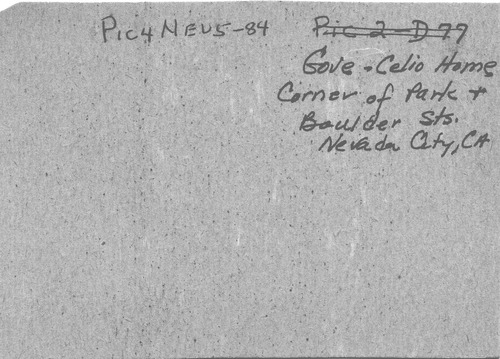 Pic 4 Nev 5-84 Pic 2-D 77
Gove-Celio Home
Corner of Park +
Boulder Sts.
Nevada City, CA